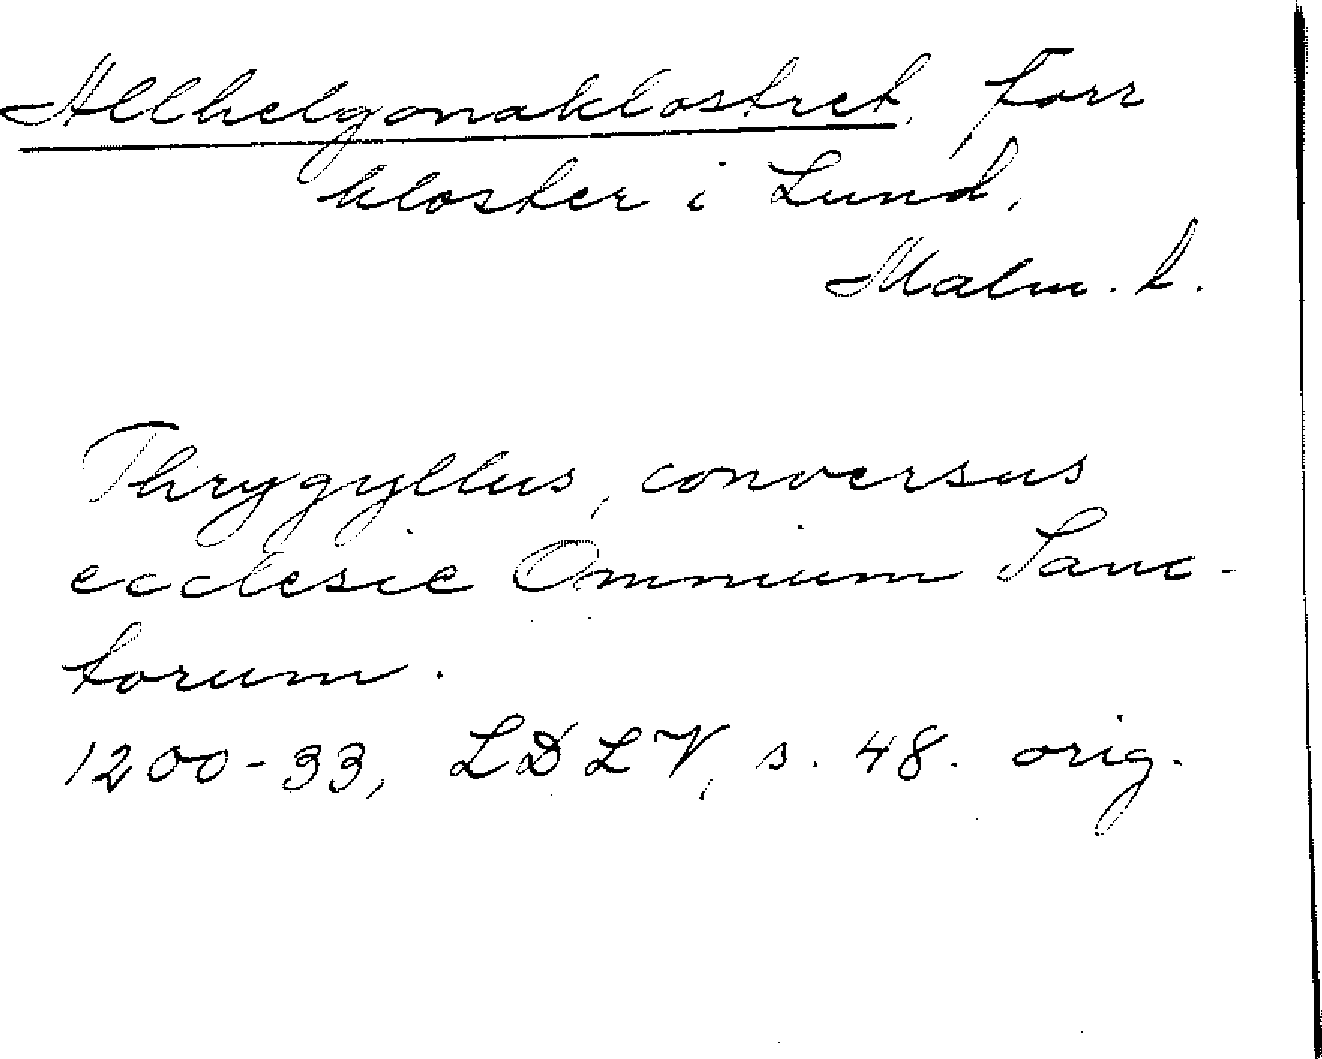 Allhelgonaklostret, förr
kloster i Lund,
Malm. l.
Thrygyllus, conversus
ecclesie Omnium Sanc-
torum.
1200-33, LDLV, s. 48. orig.